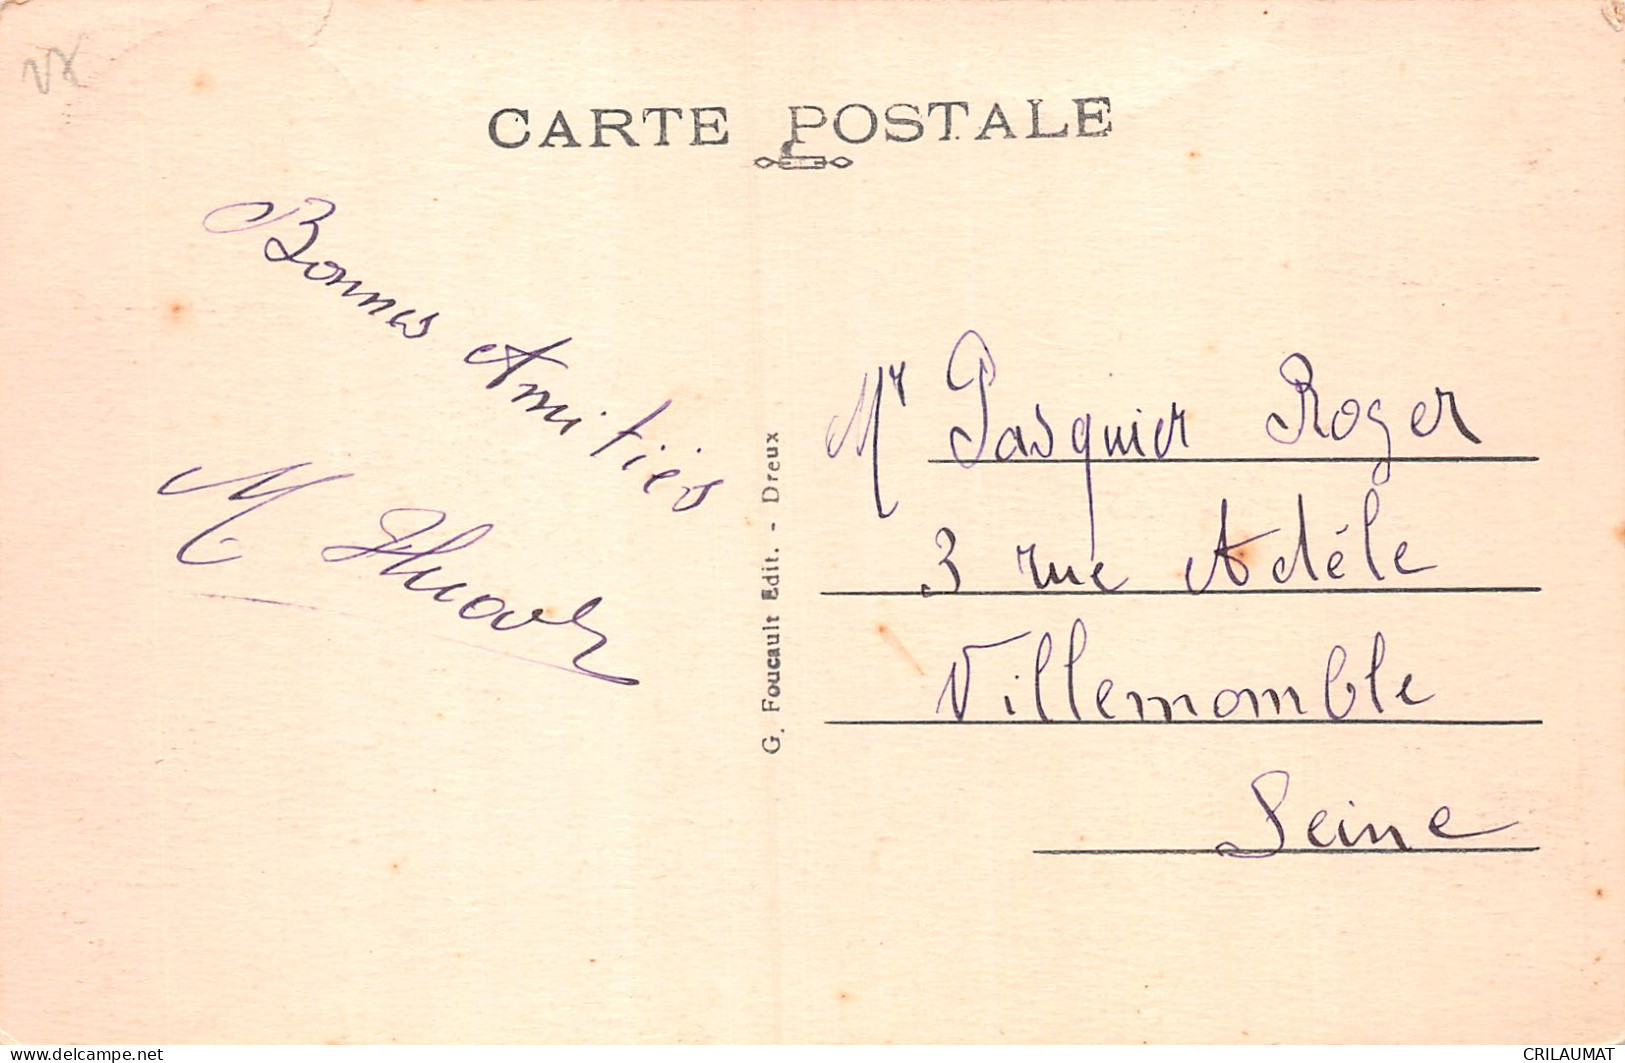 CARTE POSTALE
Bonnes Amitiés
M
G. Foucault Edit. - Dreux
Mr Pasquier Roger
3 rue Adéle
Villemomble
Seine
www.delcampe.net
CRILAUMAT